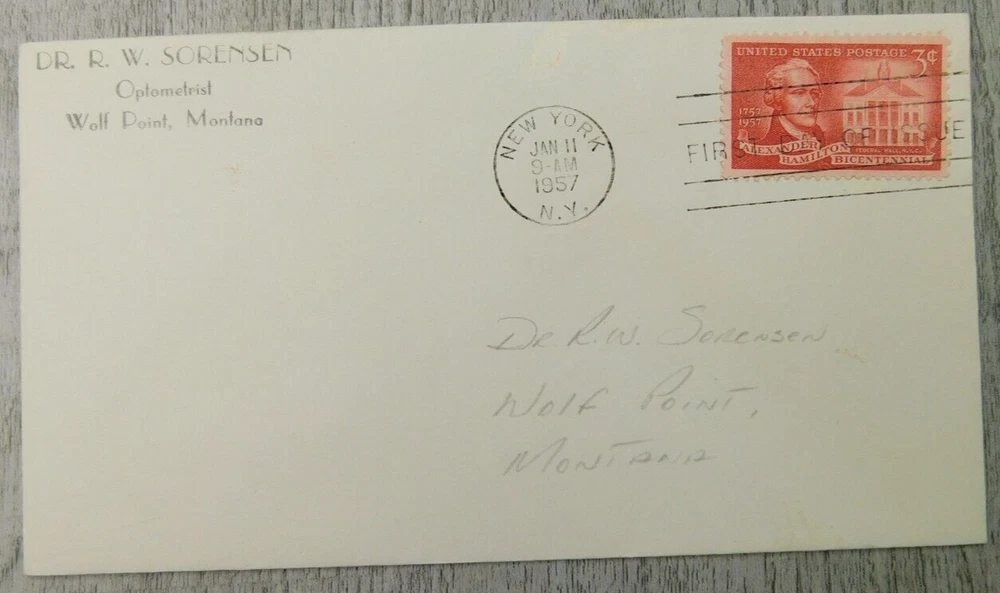 DR. R. W. SORENSEN
Optometrist
Wolf Point, Montana
NEW YORK
JAN 11
9-AM
1957
N.Y.
UNITED STATES POSTAGE 3¢
1757
1957
ALEXANDER
HAMILTON
BICENTENNIAL
FEDERAL HALL, N.Y.C.
FIRST DAY OF ISSUE
Dr R.W. Sorensen
Wolf Point,
Montana